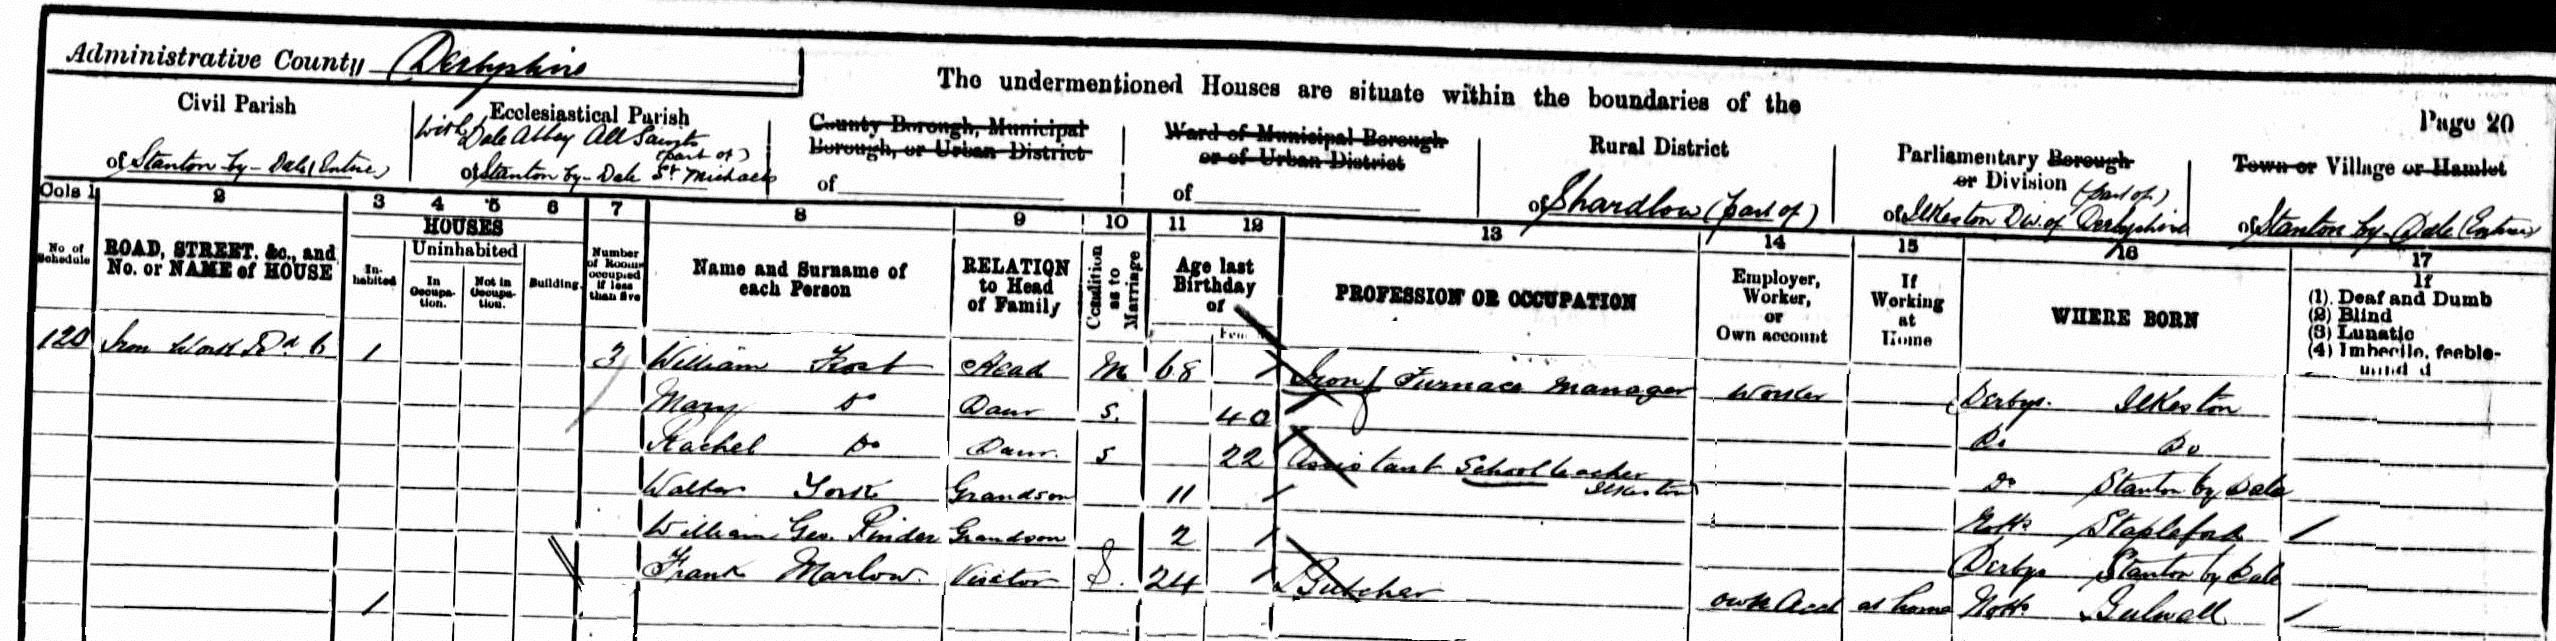 Administrative County Derbyshire
The undermentioned Houses are situate within the boundaries of the
Page 20
Civil Parish
of Stanton by-Dale (Entire)
Ecclesiastical Parish
with Dale Abbey All Saints
(part of)
of Stanton by-Dale St Michaels
County Borough, Municipal
Borough, or Urban District
of
Ward of Municipal Borough
or of Urban District
of
Rural District
of Shardlow (part of)
Parliamentary Borough
or Division (part of)
of Ilkeston Div. of Derbyshire
Town or Village or Hamlet
of Stanton by-Dale (Entire)
Cols 1 2 3 4 5 6 7 8 9 10 11 12 13 14 15 16 17
No. of Schedule
ROAD, STREET, &c., and
No. or NAME of HOUSE
HOUSES
In-habited
Uninhabited
In Occupa-tion.
Not in Occupa-tion.
Building.
Number of Rooms occupied if less than five
Name and Surname of
each Person
RELATION
to Head
of Family
Condition as to Marriage
Age last
Birthday
of
PROFESSION OR OCCUPATION
Employer,
Worker,
or
Own account
If
Working
at
Home
WHERE BORN
If
(1) Deaf and Dumb
(2) Blind
(3) Lunatic
(4) Imbecile, feeble-
minded
120 Iron Work Rd 6 1 3 William Frost Head M 68 Iron Furnace Manager Worker Derbys. Ilkeston
Mary Do Daur S. 40 Do Do
Rachel Do Daur. S 22 Assistant School teacher Do Stanton by Dale
Ilkeston
Walter York Grandson 11 Notts Stapleford
William Geo. Pinder Grandson 2 Derbys Stanton by Dale
Frank Marlow. Visitor S. 24 Butcher own Acct at home Notts
1